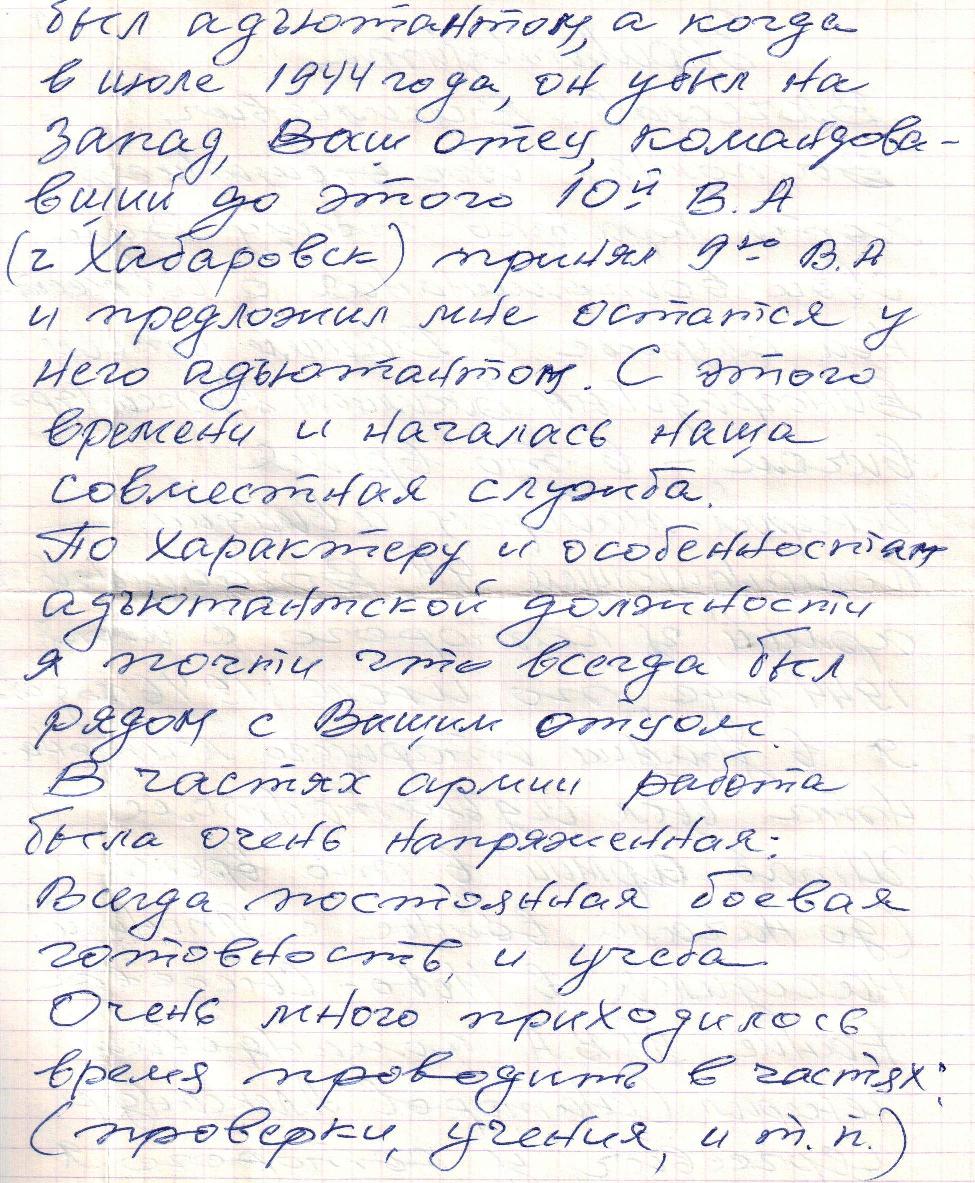 был адъютантом, а когда
в июле 1944 года, он убыл на
Запад, Ваш отец, командова-
вший до этого 10й В.А
(г. Хабаровск) принял 9ю В.А
и предложил мне остатся у
него адъютантом. С этого
времени и началась наша
совместная служба.
По характеру и особенностям
адъютантской должности
я почти что всегда был
рядом с Вашим отцом.
В частях армии работа
была очень напряженная:
Всегда постоянная боевая
готовность, и учеба
Очень много приходилось
время проводить в частях:
(проверки, учения, и т.п.)